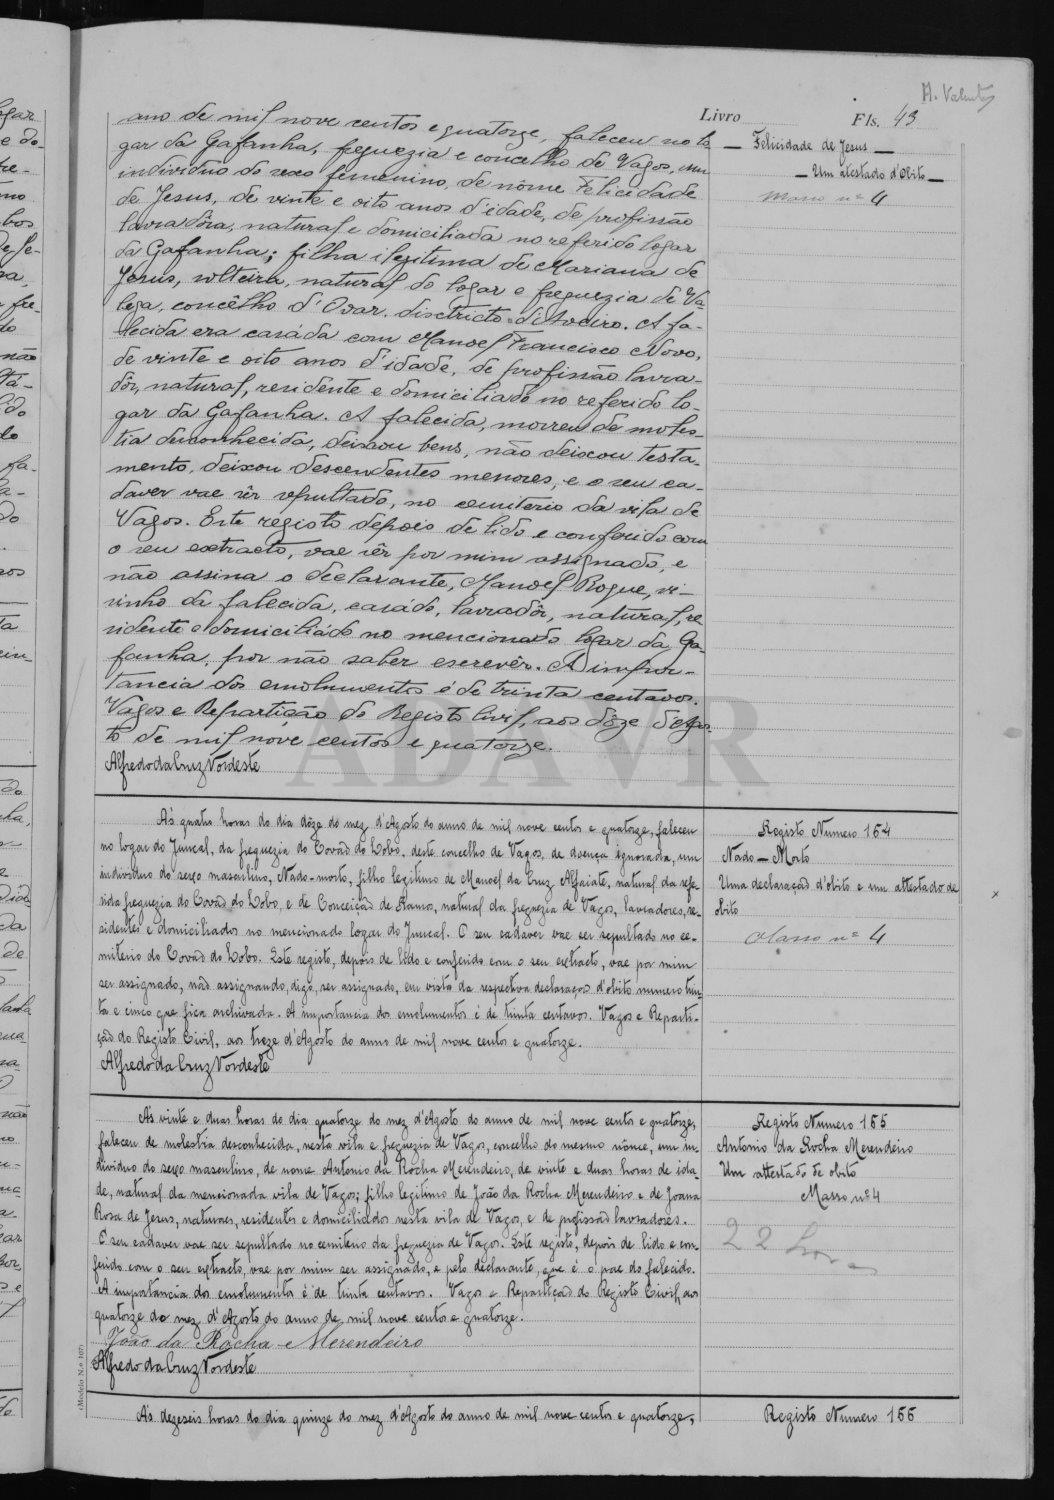 A. Valente
Livro Fls. 43
ano de mil nove centos e quatorze, faleceu no lo-
gar da Gafanha, freguezia e concelho de Vagos, um
individuo do sexo femenino, de nôme Felicidade
de Jesus, de vinte e oito anos d'idade, de profissão
lavradôra, natural e domiciliada no referido logar
da Gafanha; filha ilegitima de Mariana de
Jesus, solteira, natural do logar e freguezia de Va-
lega, concêlho d'Ovar, disctricto d'Aveiro. A fa-
lecida era casáda com Manoel Francisco Novo,
de vinte e oito anos d'idade, de profissão lavra-
dôr, natural, residente e domiciliado no referido lo-
gar da Gafanha. A falecida, morreu de moles-
tia desconhecida, deixou bens, não deixou testa-
mento, deixou descendentes menores, e o seu ca-
daver vae sêr sepultado, no cemiterio da vila de
Vagos. Este registo depois de lido e conferido com
o seu extracto, vae sêr por mim assignado, e
não assina o declarante, Manoel Roque, vi-
sinho da falecida, casádo, lavradôr, natural, re-
sidente e domiciliádo no mencionado logar da Ga-
fanha, por não saber escrevêr. A impor-
tancia dos emolumentos é de trinta centavos.
Vagos e Repartição do Registo Civil, aos dôze d'Agos-
to de mil nove centos e quatorze.
Alfredo da Cruz Nordeste
— Felicidade de Jesus —
— Um atestado d'obito —
Masso nº 4
A's quatro horas do dia dôze do mez d'Agosto do anno de mil nove centos e quatorze, faleceu
no logar do Juncal, da freguezia do Covão do Lobo, deste concelho de Vagos, de doença ignorada, um
individuo do sexo masculino, Nado-morto, filho legitimo de Manoel da Cruz Alfaiate, natural da refe-
rida freguezia do Covão do Lobo, e de Conceição de Ramos, natural da freguezia de Vagos, lavradores, re-
sidentes e domiciliados no mencionado logar do Juncal. O seu cadaver vae ser sepultado no ce-
miterio do Covão do Lobo. Este registo, depois de lido e conferido com o seu extracto, vae por mim
ser assignado, não assignando, digo, ser assignado, em vista da respectiva declaração d'obito numero trin-
ta e cinco que fica archivada. A importancia dos emolumentos é de trinta centavos. Vagos e Reparti-
ção do Registo Civil, aos treze d'Agosto do anno de mil nove centos e quatorze.
Alfredo da Cruz Nordeste
Registo Numero 154
Nado — Morto
Uma declaração d'obito e um attestado de
obito
Masso nº 4
A's vinte e duas horas do dia quatorze do mez d'Agosto do anno de mil nove centos e quatorze,
faleceu de molestia desconhecida, nesta vila e freguezia de Vagos, concelho do mesmo nôme, um in-
dividuo do sexo masculino, de nome Antonio da Rocha Merendeiro, de vinte e duas horas de ida-
de, natural da mencionada vila de Vagos; filho legitimo de João da Rocha Merendeiro e de Joana
Rosa de Jesus, naturaes, residentes e domiciliados nesta vila de Vagos, e de profissão lavradores.
O seu cadaver vae ser sepultado no cemiterio da freguezia de Vagos. Este registo, depois de lido e con-
ferido com o seu extracto, vae por mim ser assignado, e pelo declarante, que é o pae do falecido.
A importancia dos emolumentos é de trinta centavos. Vagos e Repartição do Registo Civil, aos
quatorze do mez d'Agosto do anno de mil nove centos e quatorze.
João da Rocha Merendeiro
Alfredo da Cruz Nordeste
Registo Numero 155
Antonio da Rocha Merendeiro
Um attestado de obito
Masso nº 4
22 horas
(Modelo N.º 107)
A's dezeseis horas do dia quinze do mez d'Agosto do anno de mil nove centos e quatorze,
Registo Numero 156
ADAVR